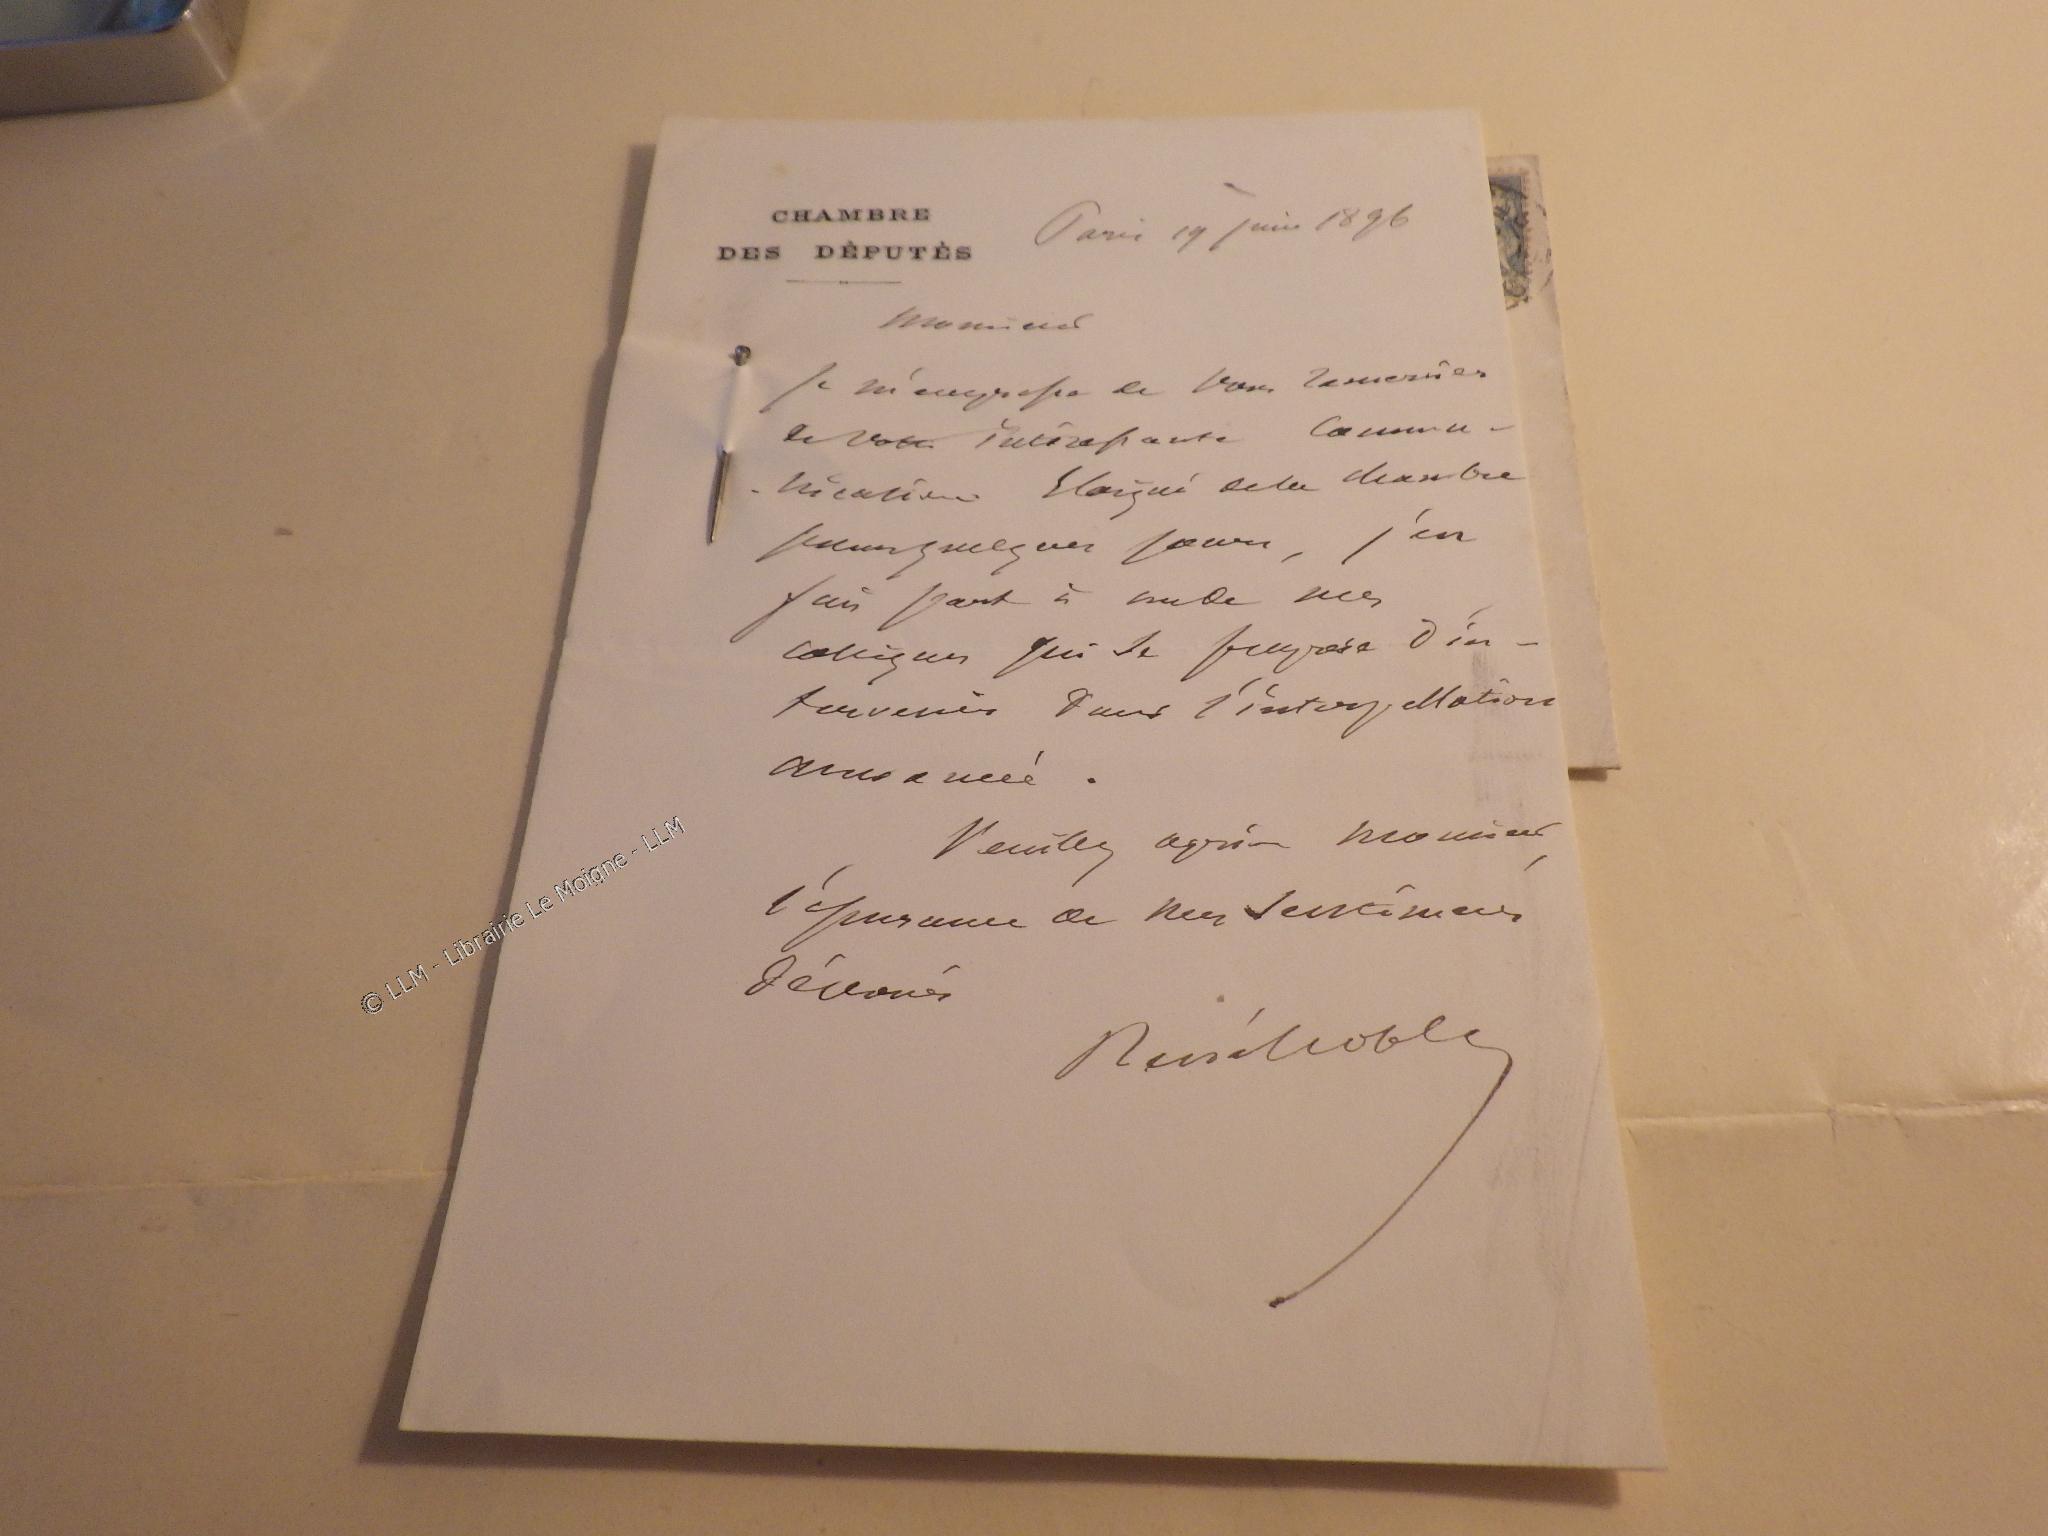 CHAMBRE
DES DÉPUTÉS
Paris 19 juin 1896
Monsieur
Je m'empresse de vous remercier
de votre intéressante commu-
-nication Eloigné de la Chambre
pour quelques jours, j'en
fais part à un de mes
collègues qui se propose d'in-
tervenir dans l'interpellation
annoncée.
Veuillez agréer Monsieur,
l'assurance de mes sentiments
dévoués
René
© LLM - Librairie Le Moigne - LLM